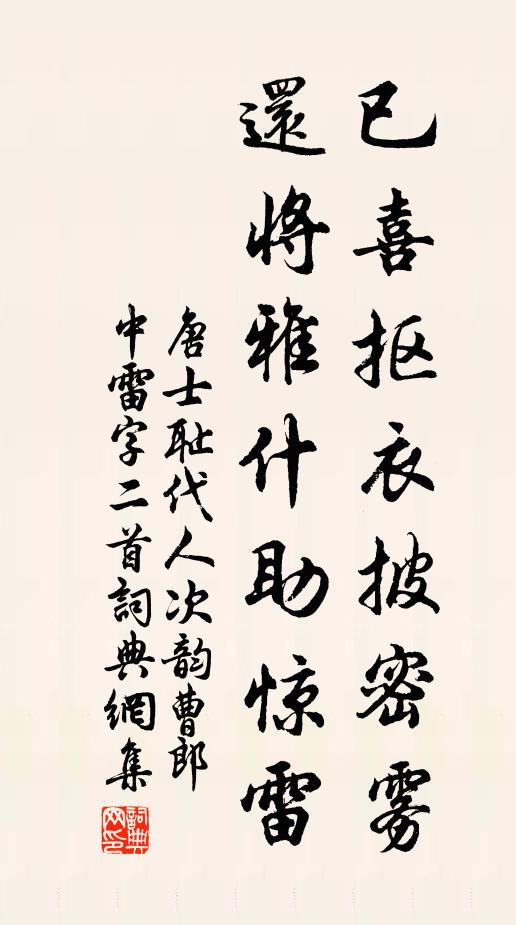 已喜抠衣披密雾
還將雅什助惊雷
唐士耻代人次韵曹郎
中雷字二首詞典網集
詞典网印